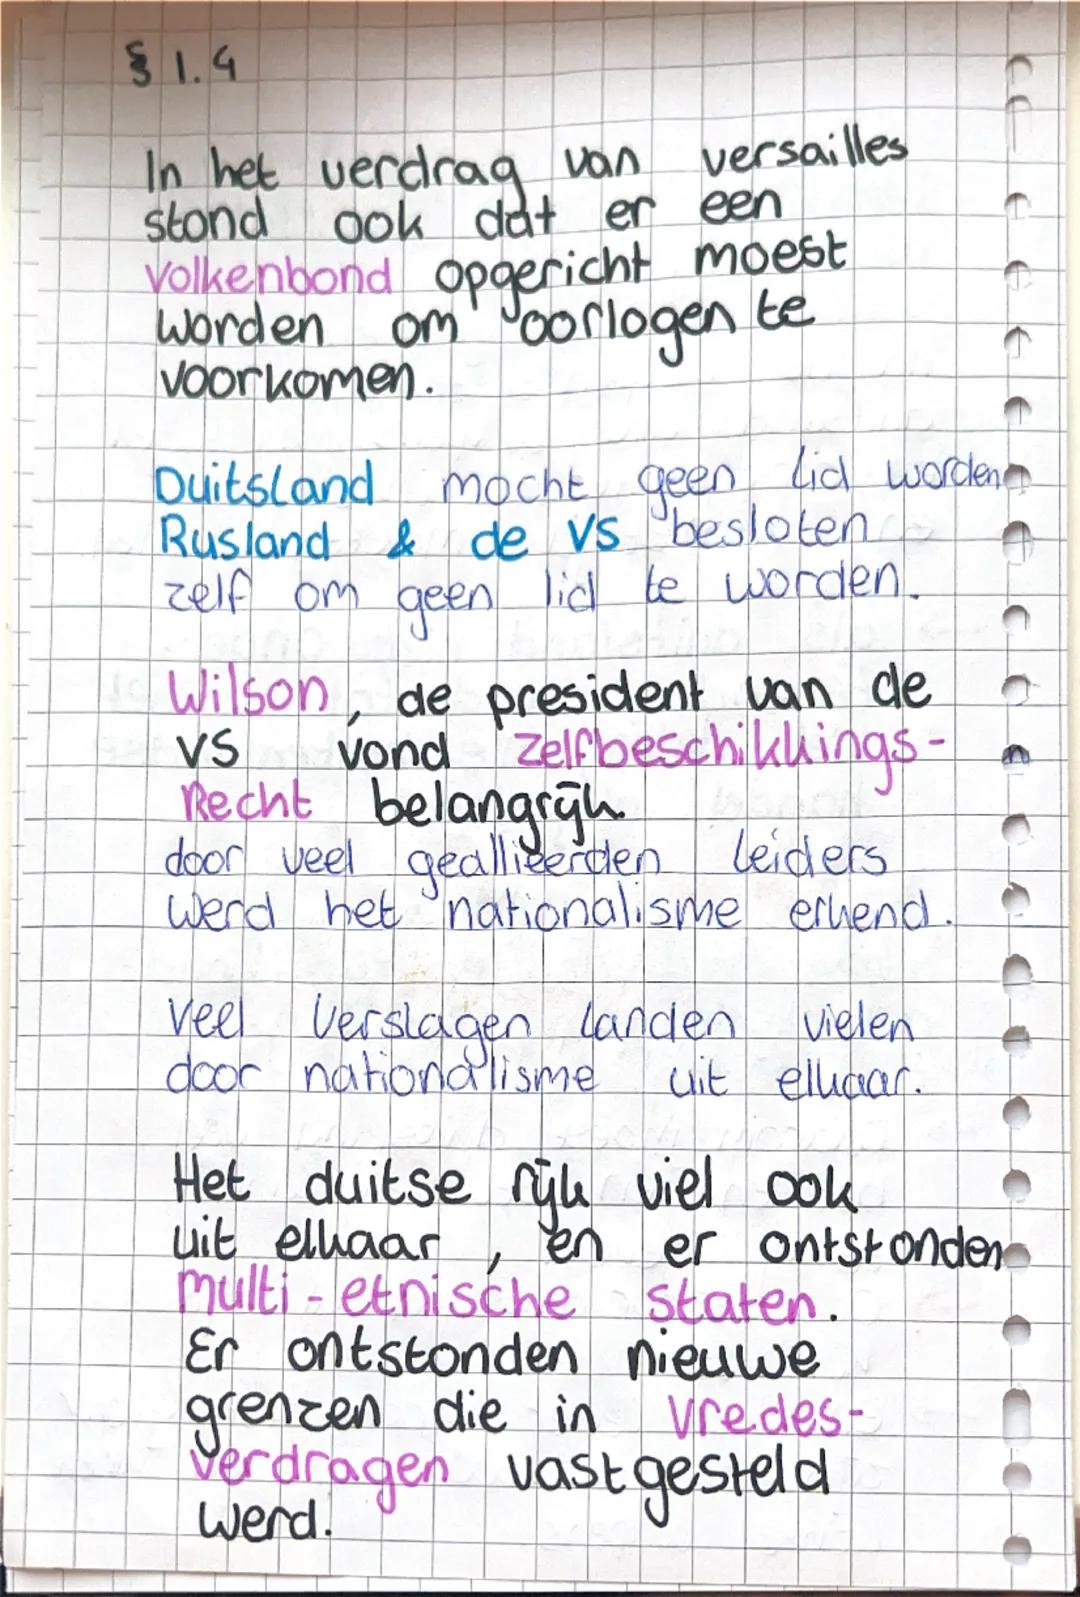 § 1.4
In het verdrag van versailles
stond ook dat er een
volkenbond opgericht moest
worden om oorlogen te
voorkomen.
Duitsland mocht geen lid worden
Rusland & de VS besloten
zelf om geen lid te worden.
Wilson, de president van de
VS vond zelfbeschikkings-
Recht belangrijk
door veel geallieerden leiders
werd het nationalisme erkend.
Veel Verslagen landen vielen
door nationalisme uit elkaar.
Het duitse rijk viel ook
uit elkaar, en er ontstonden
multi-etnische staten.
Er ontstonden nieuwe
grenzen die in vredes-
verdragen vastgesteld
werd.